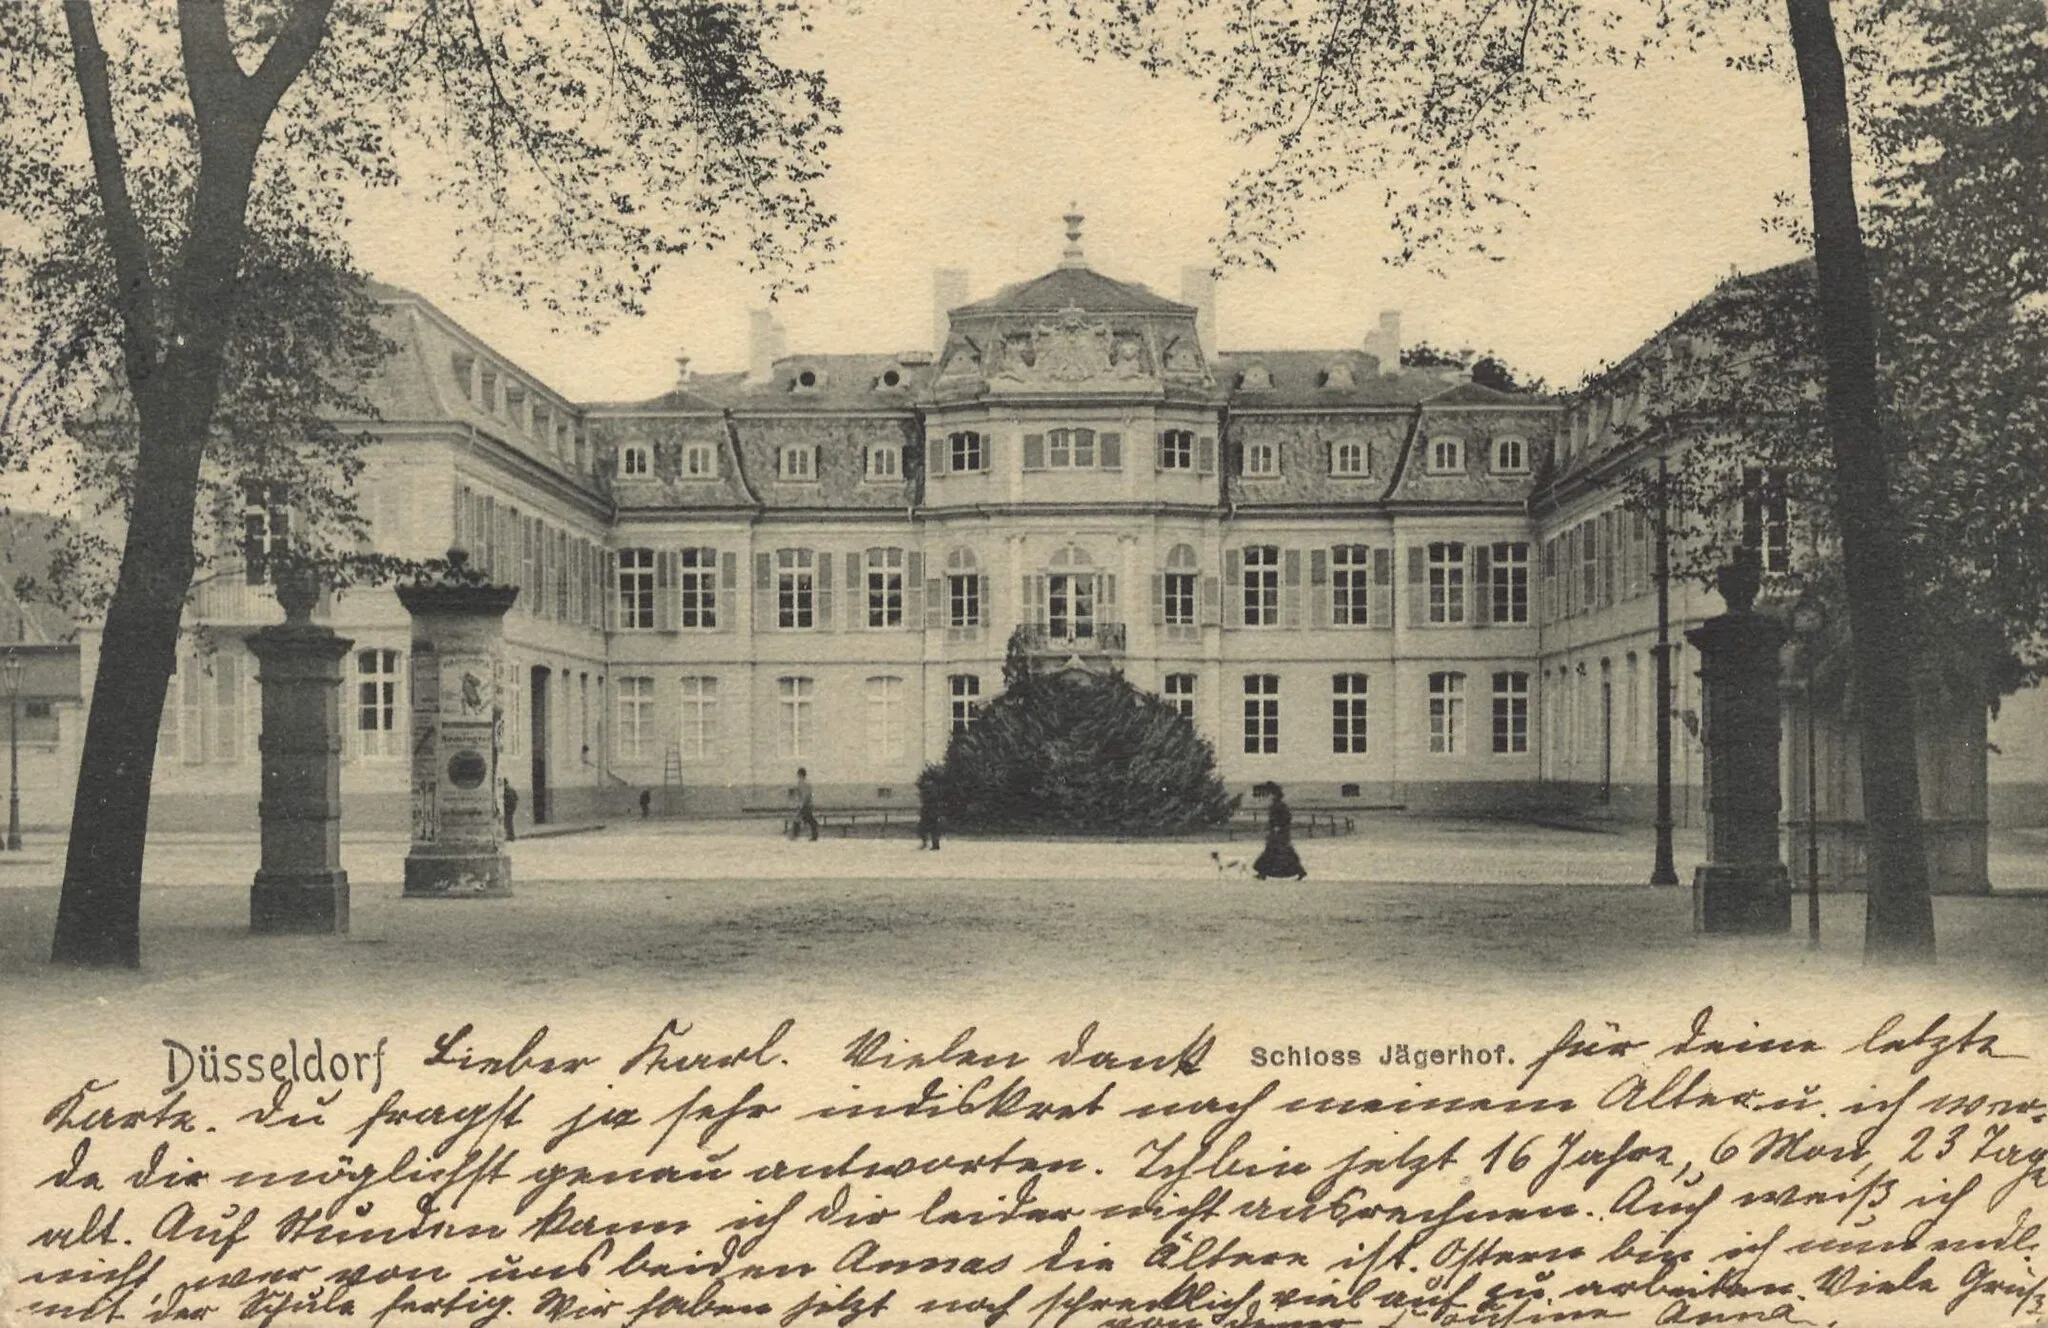 Remington
Düsseldorf Lieber Karl. Vielen Dank Schloss Jägerhof. für deine letzte
Karte. Du fragst ja sehr indiskret nach meinem Alter u. ich wer-
de dir möglichst genau antworten. Ich bin jetzt 16 Jahre, 6 Mon, 23 Tage
alt. Auf Stunden kann ich dir leider nicht ausrechnen. Auch weiß ich
nicht, wer von uns beiden Annas die Ältere ist. Ostern bin ich nun endl.
mit der Schule fertig. Wir haben jetzt noch schrecklich viel auf zu arbeiten. Viele Grüße
von deiner Cousine Anna.